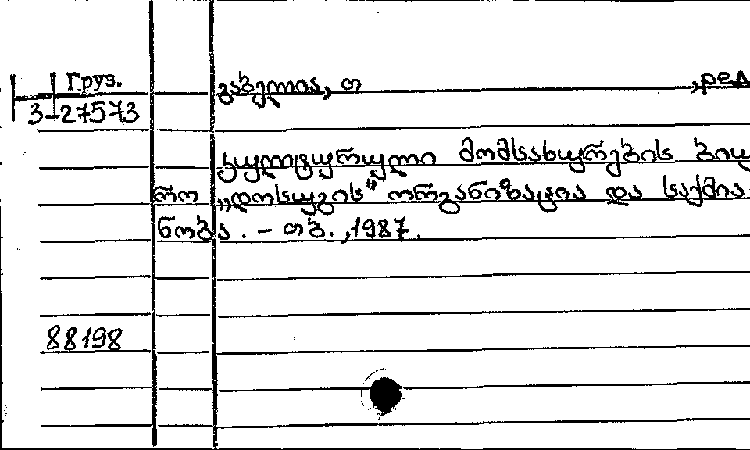 Груз.
3-27573
გაბელია, თ , ред
კულტურული მომსახურების ბიუ
რო „დოსუგის“ ორგანიზაცია და საქმია
ნობა. - თბ., 1987.
88198